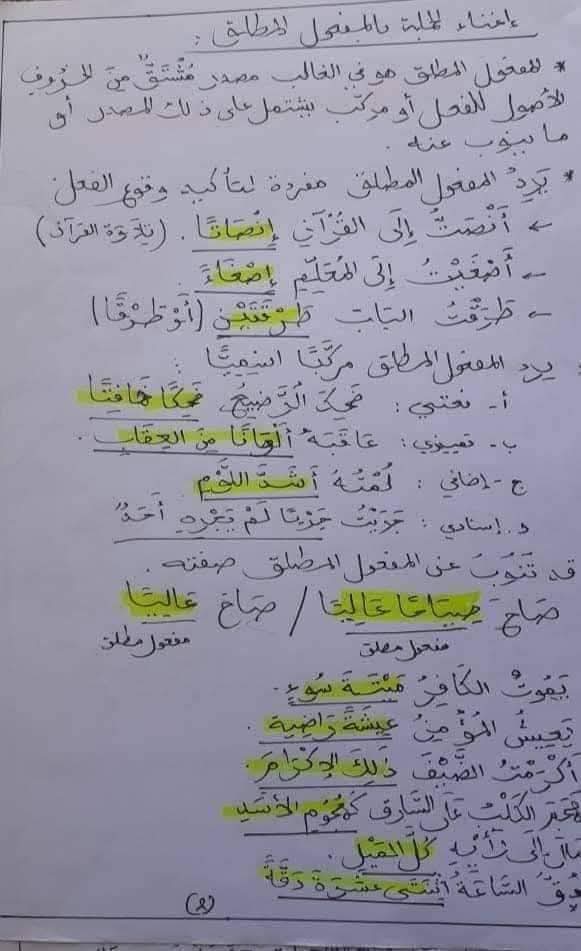 إغناء الجملة بالمفعول المطلق :
* المفعول المطلق هو في الغالب مصدر مُشْتَقٌّ مِنَ الحُرُوفِ
الأصول للفعل أو مركّب يشتمل على ذلك المصدر أو
ما ينوب عنه .
* يَرِدُ المفعول المطلق مفردة لتأكيد وقوع الفعل
← أَنْصَتُّ إِلَى القُرْآنِ إِنْصَاتًا . (تلاوة القرآن)
← أَصْغَيْتُ إِلَى المُعَلِّمِ إِصْغَاءً .
← طَرَقْتُ البَابَ طَرْقَتَيْنِ (أَوْ طَرْقًا)
يرد المفعول المطلق مركّبًا اسْمِيًّا :
أ - نعتي : ضَحِكَ الرَّضِيعُ ضَحِكًا خَافِتًا
ب - تمييزي : عَاقَبَهُ أَلْوَانًا مِنَ العِقَابِ .
ج - إضافي : لُمْتُهُ أَشَدَّ اللَّوْمِ
د . إسنادي : جَرَيْتُ جَرْيًا لَمْ يَجْرِهِ أَحَدٌ
قد تَنُوبُ عن المفعول المطلق صفته .
صَاحَ صِيَاحًا عَالِيًا / صَاحَ عَالِيًا
مفعول مطلق مفعول مطلق
يَمُوتُ الكَافِرُ مَيْتَةَ سُوءٍ .
يَعِيشُ المُؤْمِنُ عِيشَةً رَاضِيَة .
أَكْرَمْتُ الضَّيْفَ ذَلِكَ الإِكْرَامَ .
الكَلْبُ عَلَى السَّارِقِ كَهُجُومِ الأَسَدِ
مَالَ إِلَى رَأْيِهِ كُلَّ المَيْلِ .
السَّاعَةُ اثْنَتَيْ عَشْرَةَ دَقَّةً
(2)